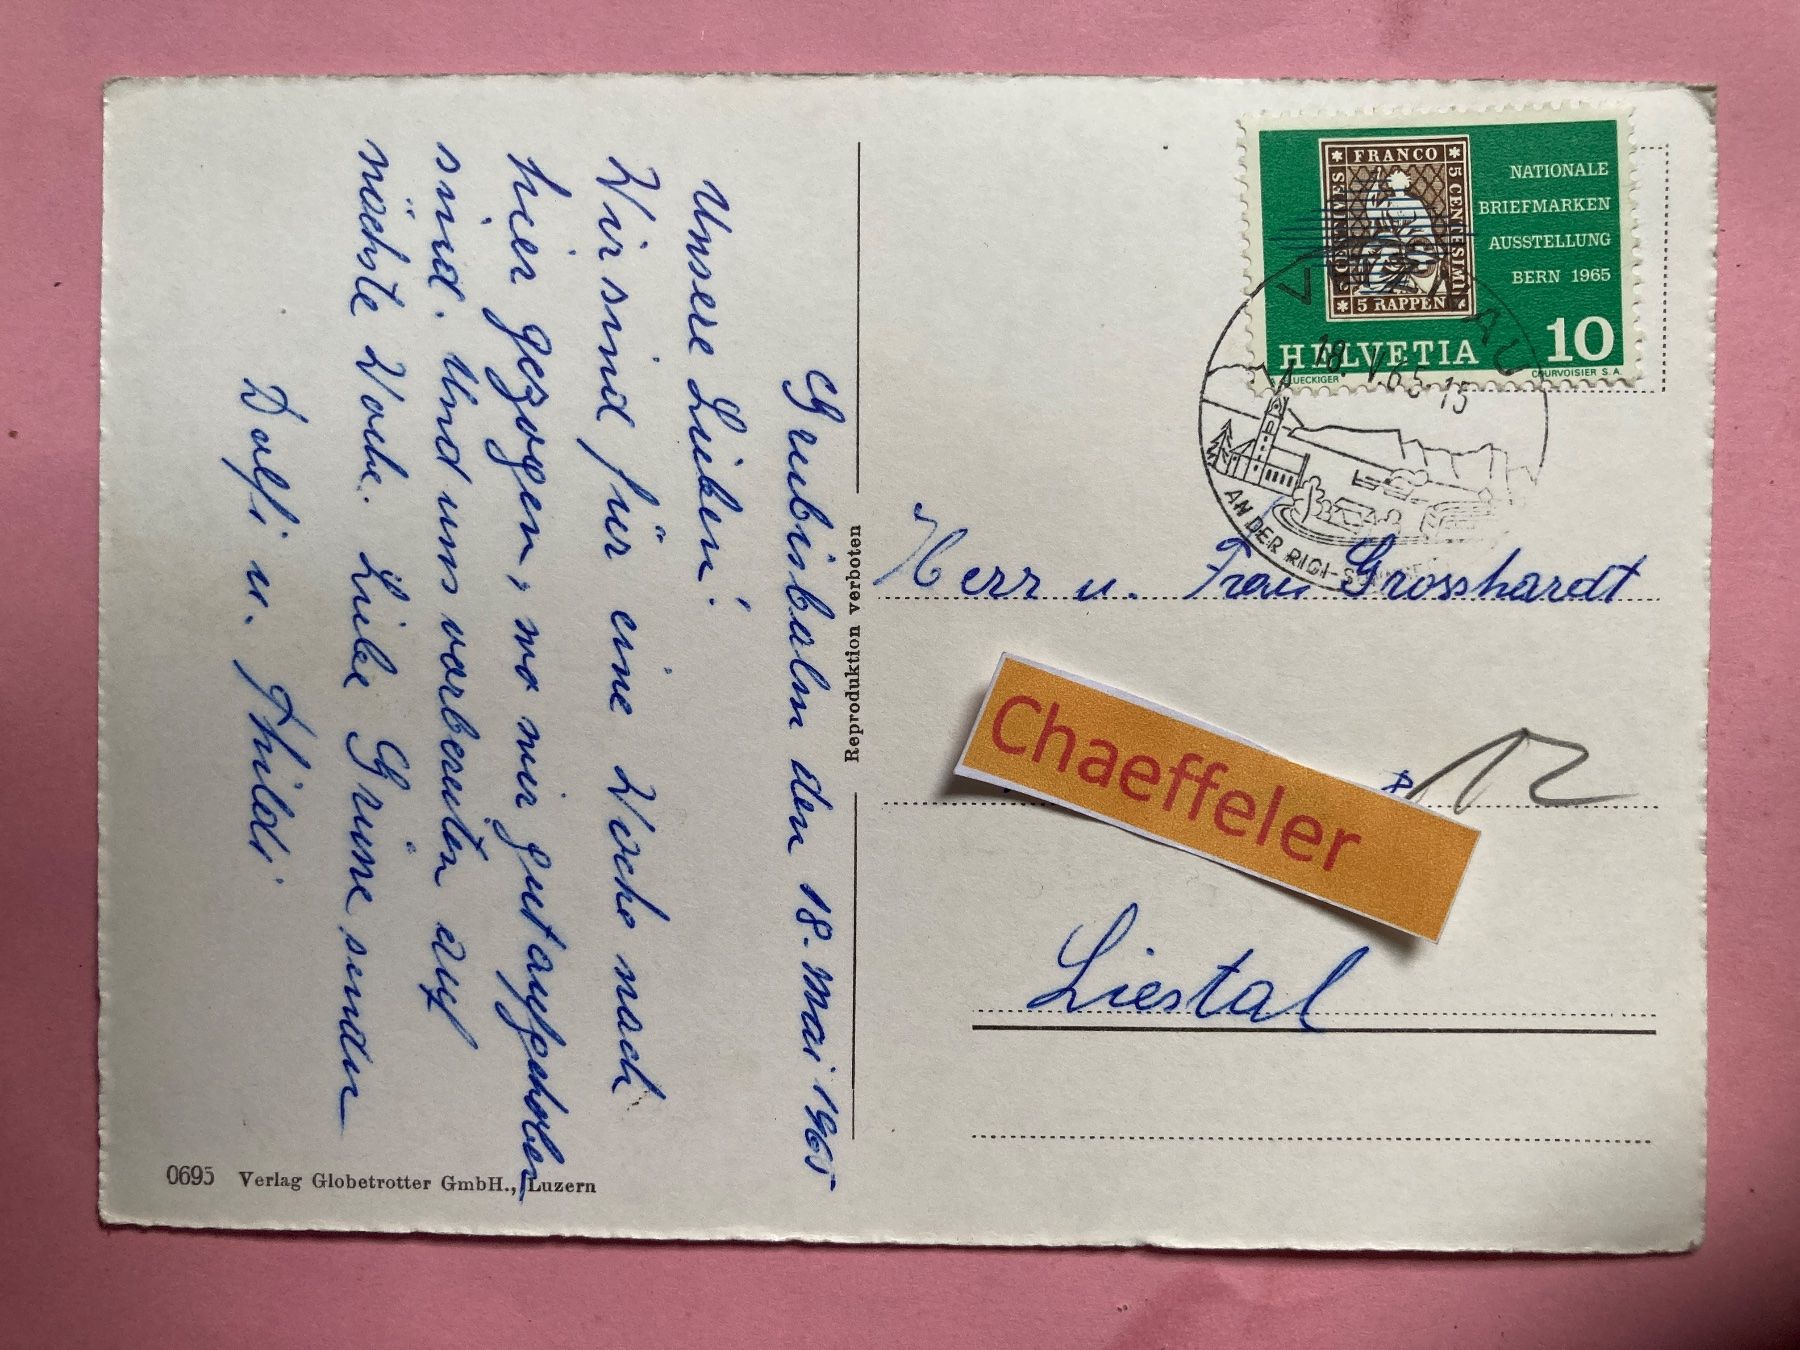 Grubisbalm den 18. Mai 1965
Unsere Lieben!
Wir sind für eine Woche nach
hier gezogen, wo wir gut aufgehoben
sind. Und uns vorbereiten auf
nächste Woche. Liebe Grüsse senden
Dolfi u. Thildi
0695 Verlag Globetrotter GmbH., Luzern
Reproduktion verboten
FRANCO
5 CENTESIMI
5 RAPPEN
5 CENTIMES
NATIONALE
BRIEFMARKEN
AUSSTELLUNG
BERN 1965
HELVETIA 10
LUECKIGER
COURVOISIER S.A.
18. V. 65. 15
AN DER RIGI-
Herr u. Frau Grosshardt
Chaeffeler
Liestal